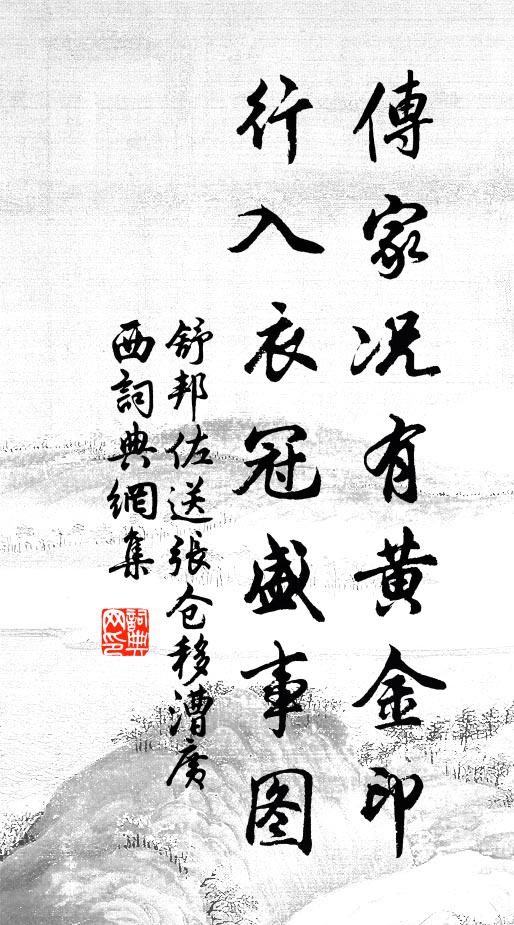 傳家况有黄金印
行入衣冠盛事图
舒邦佐送張仓移漕廣
西詞典網集
詞典网印